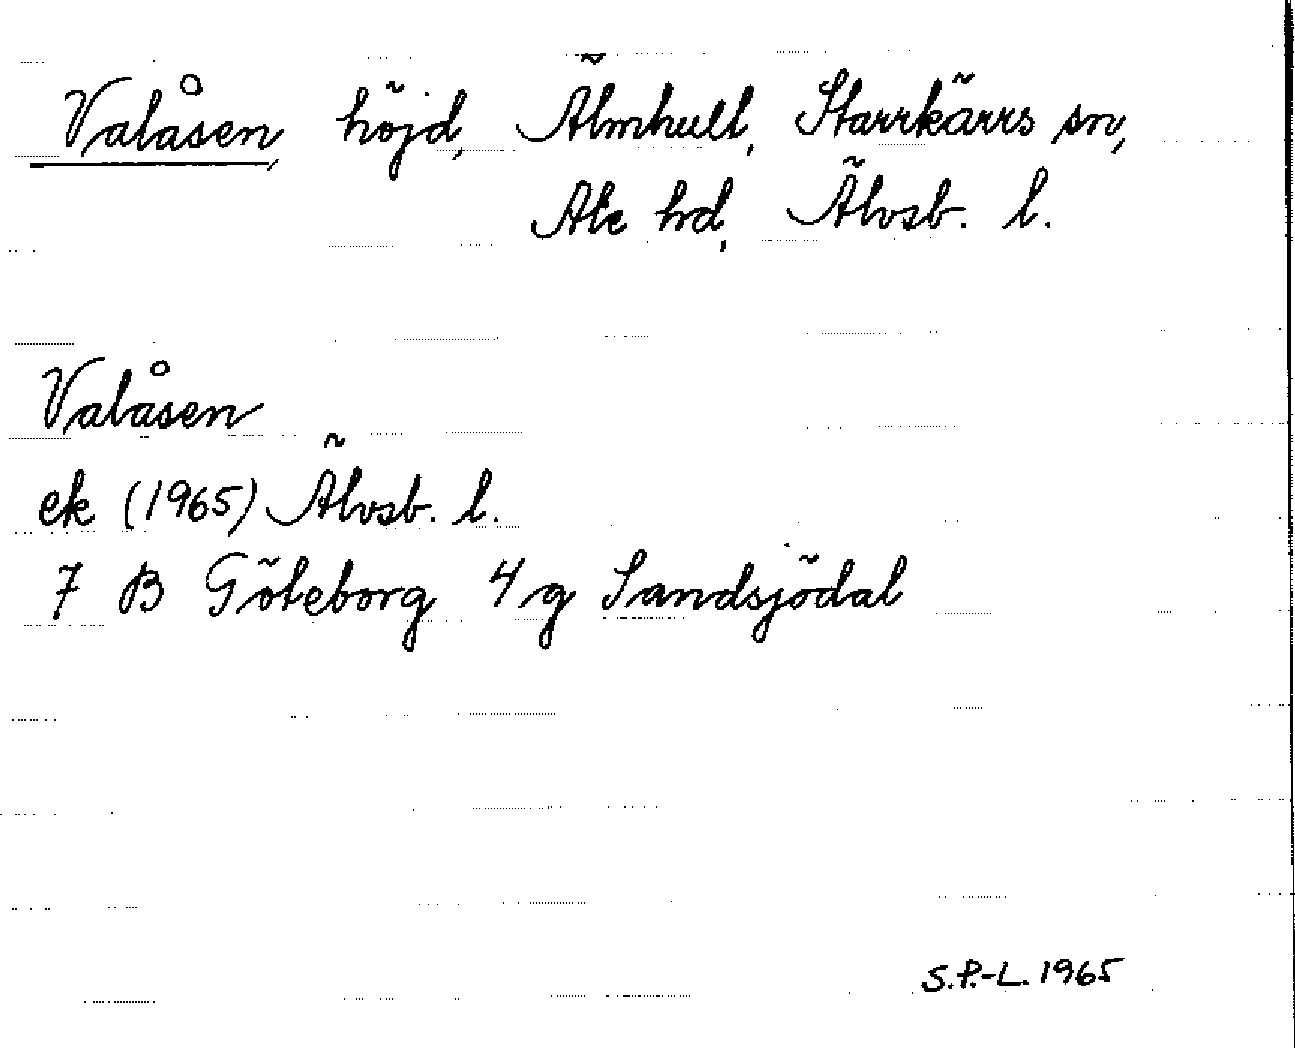 Valåsen, höjd, Älmhult, Starrkärrs sn,
Ale hd, Älvsb. l.
Valåsen
ek (1965) Älvsb. l.
7 B Göteborg 4 g Sandsjödal
S.P.-L. 1965